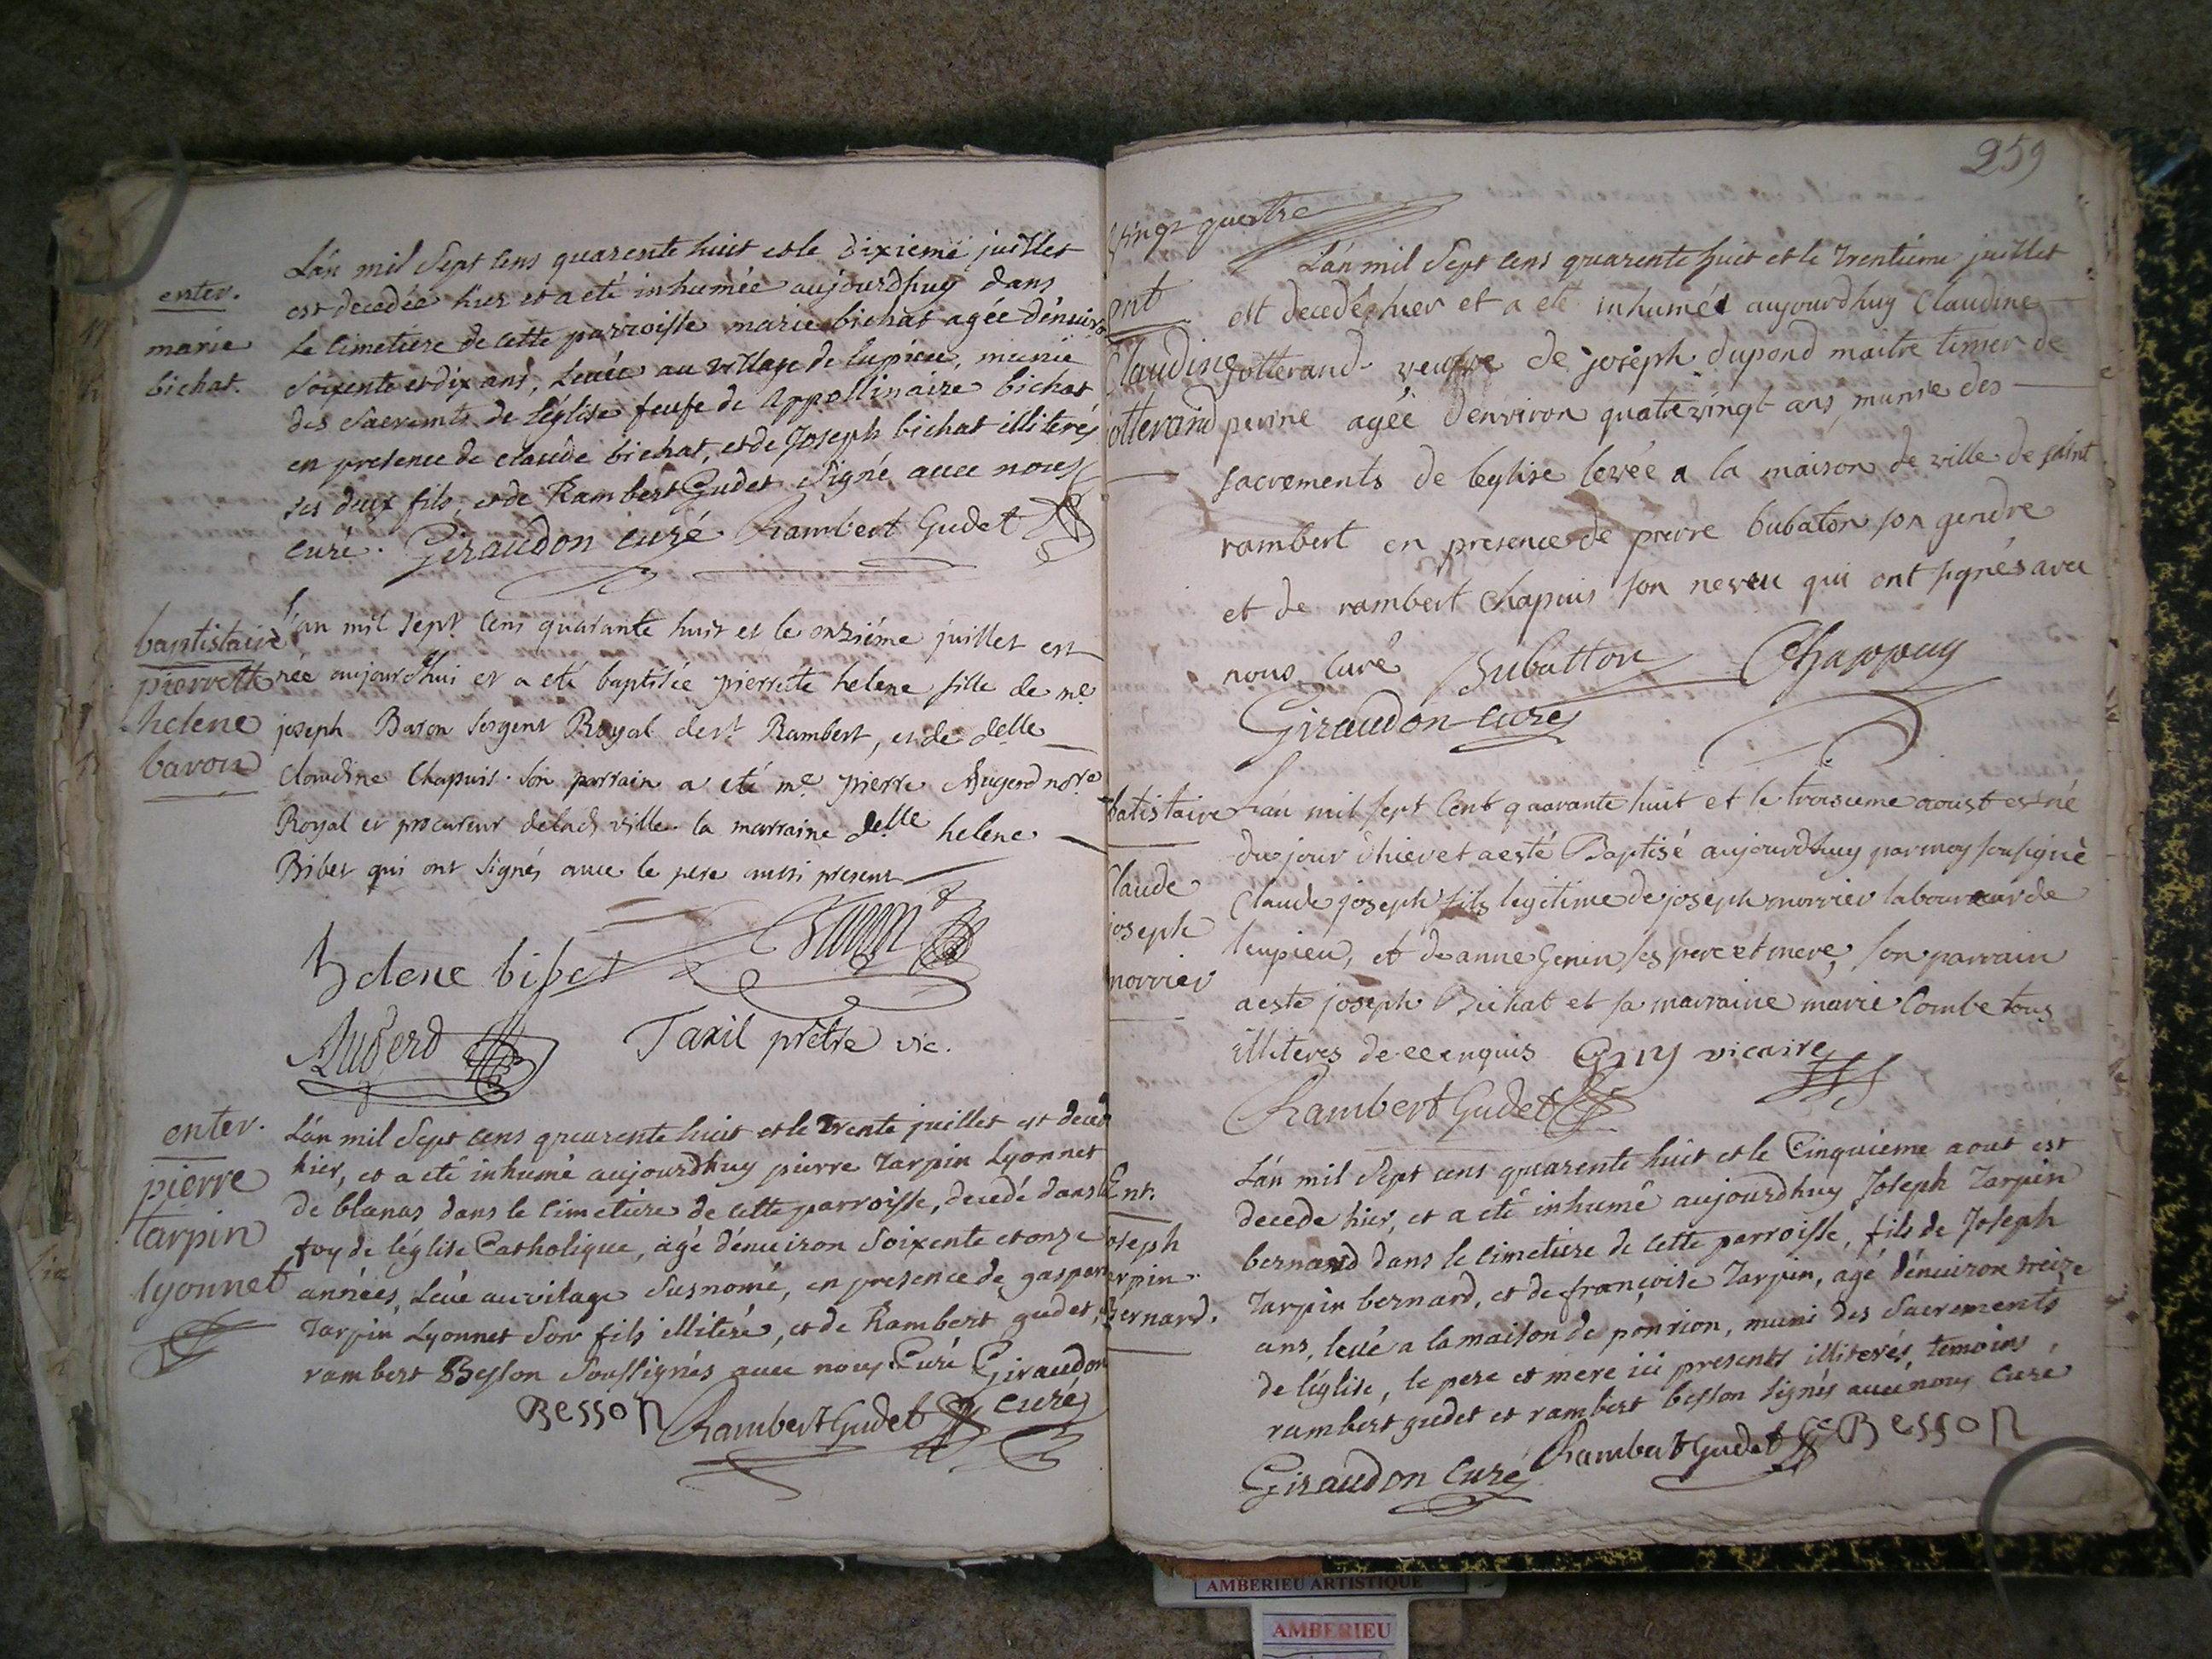 enter.
marie
bichat.
L'án mil Sept Cens quarente huit et le dixieme juillet
est decedée hier et a eté inhumée aujourdhuy dans
le Cimetiere de cette parroisse marie bichat agée d'énuiron
Soixente et dix ans, Leuée au village de lupieu, munie
des Sacremts de l'église feufe de Appollinaire bichat
en presence de claude bichat, et de Joseph bichat illiterés
ses deux fils, et de Rambert Gudet Signé auec nous
curé. Giraudon curé Rambert Gudet
baptistaire
pierrette
helene
baron
l'an mil sept Cens quarante huit et le onziéme juillet est
née aujourd'hui et a eté baptisée pierrette helene fille de me
joseph Baron Sergent Royal de st Rambert, et de delle
Claudine Chapuis. Son parrain a eté me pierre Augerd nore
Royal et procureur de lad. ville. la marraine delle helene
Bibet qui ont signés avec le pere aussi present
helene bibet
Augerd Taxil prêtre vic.
enter.
pierre
tarpin
lyonnet
L'án mil Sept Cens quarente huit et le trente juillet est deced
hier, et a eté inhumé aujourdhuy pierre Tarpin Lyonnet
de blanas dans le Cimetiere de cette parroisse, decedé dans la
foy de l'église Catholique, agé d'énuiron Soixente et onze
années, Leué au vilage Susnomé, en presence de gaspar
Tarpin Lyonnet Son fils illiteré, et de Rambert gudet,
rambert Besson Soussignés auec nous Curé Giraudon
Besson Rambert Gudet curé
259
vingt quatre
ent
Claudine
jotterand
L'án mil Sept Cens quarente huit et le trentiéme juillet
est decedée hier et a eté inhumée aujourdhuy Claudine
jotterand veufve de joseph dupond maitre timer de
perine agée denviron quatre vingt ans munie des
sacrements de leglise levée a la maison de ville de saint
rambert en presence de pierre bubaton son gendre
et de rambert Chapuis son neveu qui ont signés avec
nous curé Bubatton Chappuy
Giraudon curé
batistaire
Claude
joseph
morrier
L'an mil sept Cent quarante huit et le troisieme aoust est né
du jour d'hier et a esté Baptisé aujourdhuy par moy sousigné
Claude joseph fils legitime de joseph morrier laboureur de
leupieu, et de anne Genin ses pere et mere, son parrain
a esté joseph Bichat et sa marraine marie Combe tous
illiteres de ce enquis vicaire
Rambert Gudet
Ent.
joseph
tarpin
Bernard.
L'án mil Sept cens quarente huit et le Cinquieme aout est
decede hier, et a eté inhumé aujourdhuy Joseph Tarpin
bernard dans le Cimetiere de cette parroisse, fils de Joseph
Tarpin bernard, et de françoise Tarpin, agé d'énuiron treize
ans, leué a la maison de ponrion, muni des Sacrements
de l'église, le pere et mere ici presents illiterés, temoins
rambert gudet et rambert besson signés auec nous Curé
Giraudon Curé Rambert Gudet Besson
AMBERIEU ARTISTIQUE
AMBERIEU